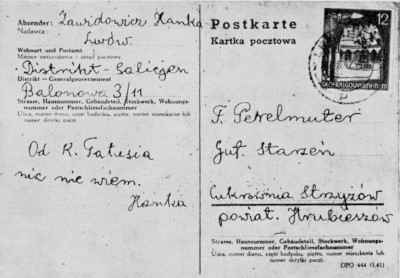 Absender: Zawidowicz Hanka
Nadawca:
Lwów
Wohnort und Postamt
Miejsce zamieszkania i urząd pocztowy
Distrikt-Galizien
Distrikt — Generalgouvernement
Balonowa 3/11
Strasse, Hausnummer, Gebäudeteil, Stockwerk, Wohnungs-
nummer oder Postschliessfachnummer
Ulica, numer domu, część budynku, piętro, numer mieszkania lub
numer skrytki poczt.
Od K. Tatusia
nic nie wiem.
Hanka
Postkarte
Kartka pocztowa
12
GENERALGOUVERNEMENT
F. Perelmuter
Gut Starzeń
Cukrownia Strzyżów
powiat. Hrubieszów
Strasse, Hausnummer, Gebäudeteil, Stockwerk, Wohnungs-
nummer oder Postschliessfachnummer
Ulica, numer domu, część budynku, piętro, numer mieszkania lub
numer skrytki poczt.
DPO 444 (3.41)